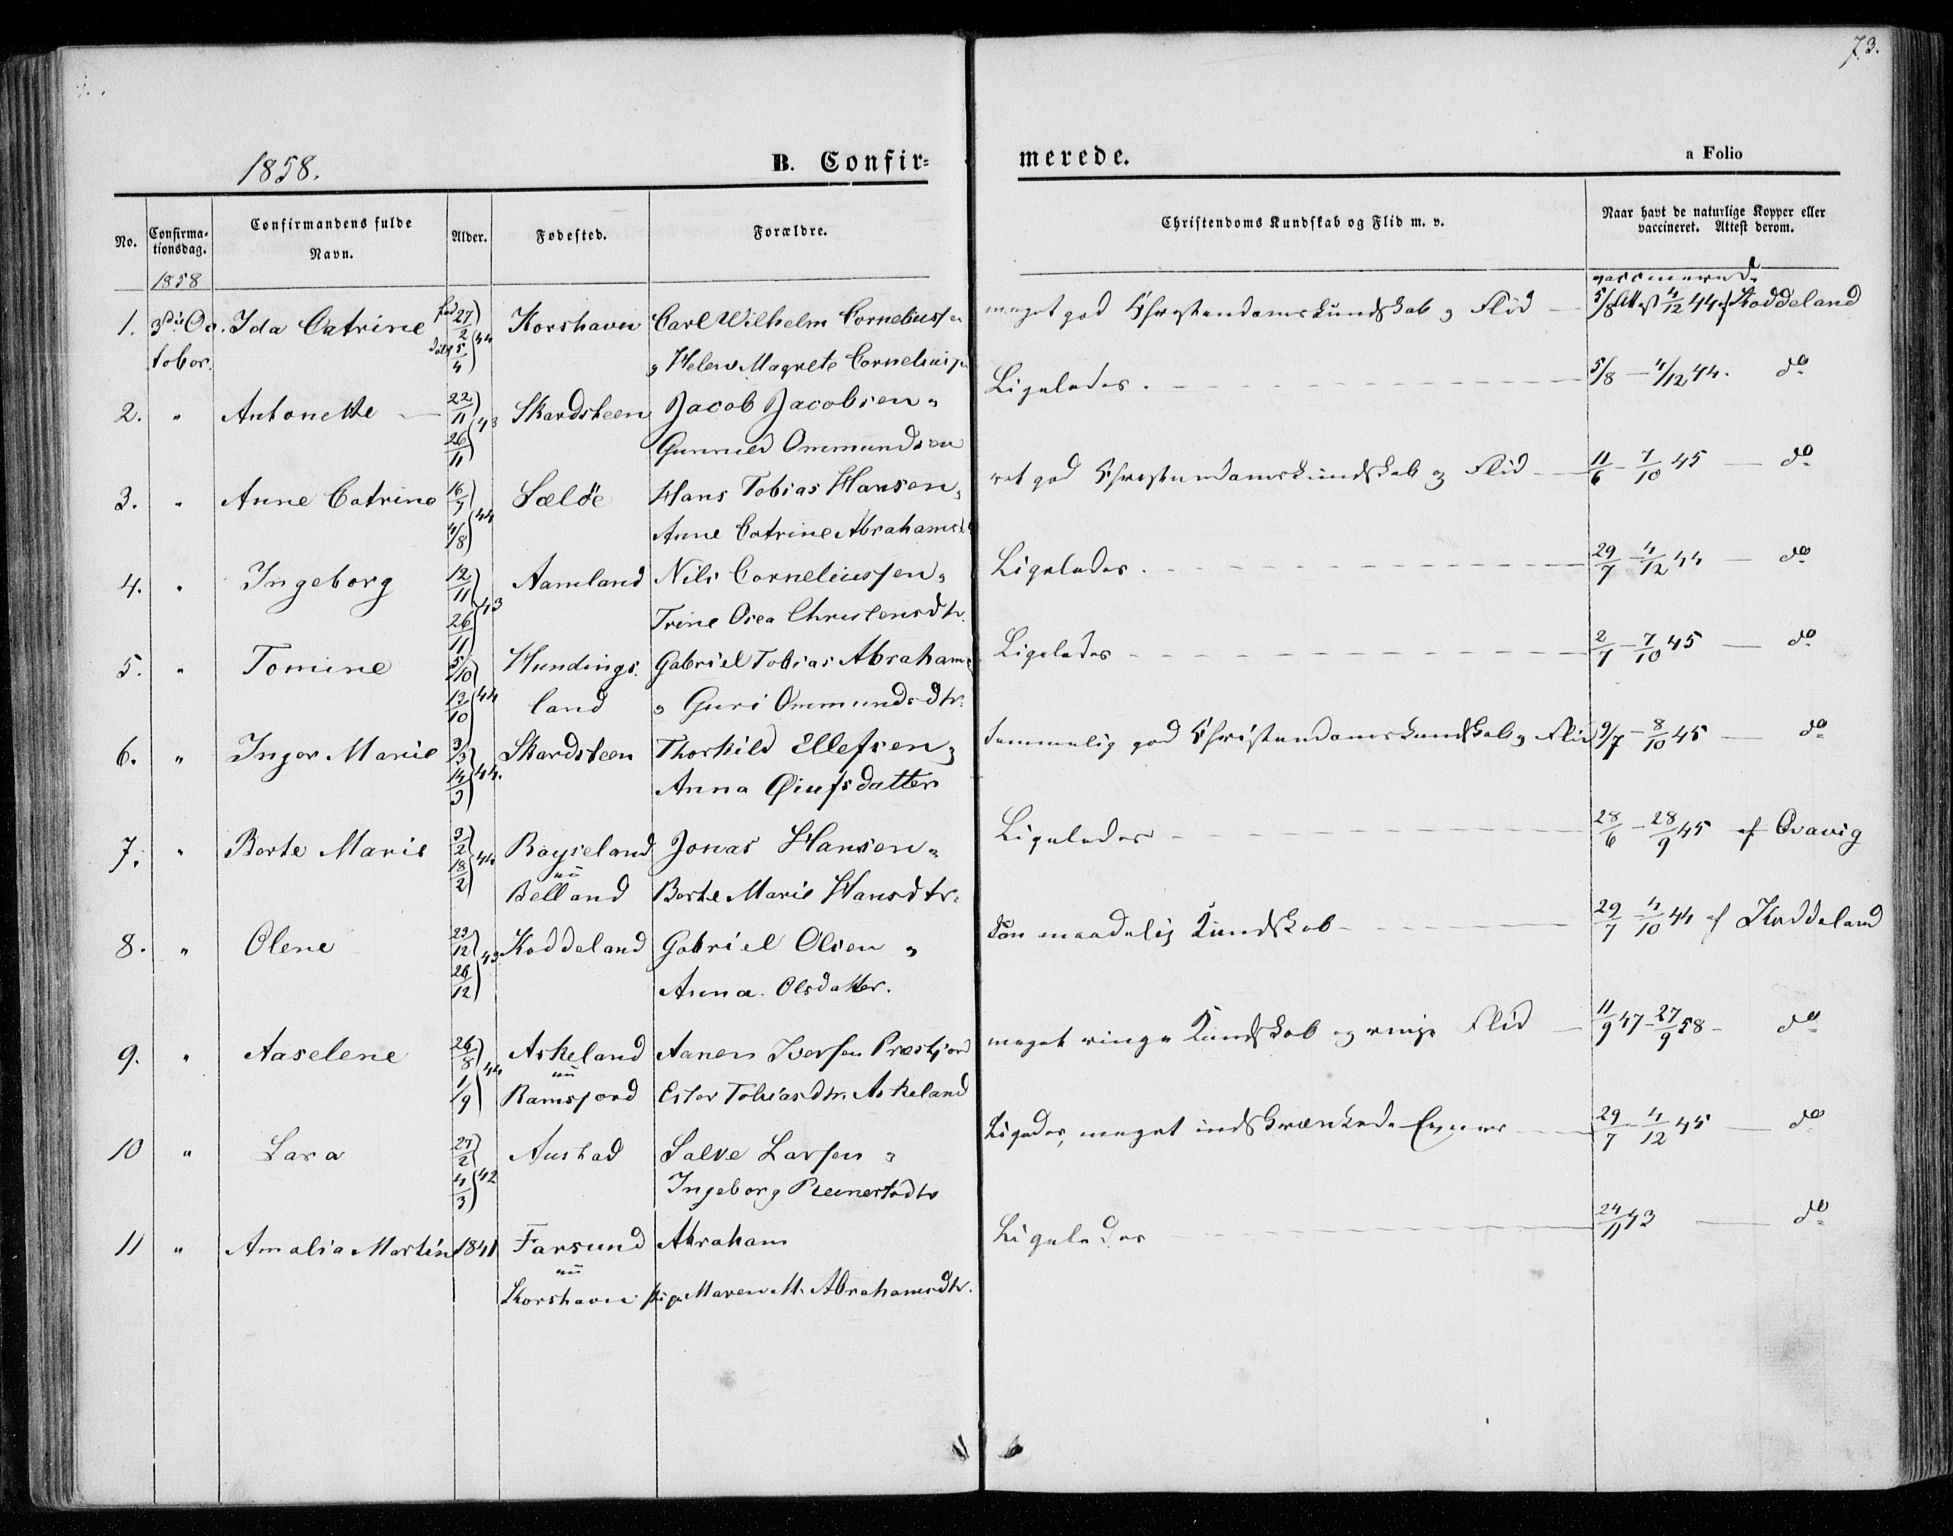 73.
1858. B. Confir= merede. a Folio
No. Confirma-tionsdag. Confirmandens fulde Navn. Alder. Fødested. Forældre. Christendoms Kundskab og Flid m. v. Naar havt de naturlige Kopper eller vaccineret. Attest derom.
1858
1. 3die Oc- Ida Catrine fød 27/2 44 Korshavn Carl Wilhelm Corneliussen meget god Christendomskundskab og Flid — 5/8 Att. 4/12 44 af Koddeland
tober. døbt 5/4 og Helene Magrete Corneliusd
2. " Antonette — 22/11 43 Skardsteen Jacob Jacobsen og Ligeledes. 5/8 – 4/12 44. do
26/11 Gunnild Ommundsen
3. " Anne Catrine 16/7 44 Sæløe Hans Tobias Hansen og ret god Christendomskundskab og Flid — 11/6 – 7/10 45 — do
4/8 Anne Catrine Abrahamsd
4. " Ingeborg 12/11 43 Aamland Nils Corneliussen og Ligeledes. 29/7 – 4/12 44 — do
26/11 Trine Osea Christensdtr.
5. " Tomine 5/10 44 Hundings- Gabriel Tobias Abrahams Ligeledes 2/7 – 7/10 45 — do
13/10 land og Guri Ommundsdtr.
6. " Inger Marie 3/3 44. Skardsteen Thorkild Ellefsen og temmelig god Christendomskundskab og Flid 9/7 – 8/10 45 — do
14/3 Anna Øiufsdatter
7. " Berte Marie 3/2 44 Røyseland Jonas Hansen og Ligeledes 28/6 – 28/9 45 af Qvavig
18/2 nu Belland Berte Marie Hansdtr.
8. " Olene 23/12 43. Koddeland Gabriel Olsen og saa maadelig Kundskab 29/7 – 4/10 44 af Koddeland
26/12 Anna Olsdatter.
9. " Aaselene 26/8 44 Askeland Aanen Iversen Præstjord meget ringe Kundskab og ringe Flid — 11/9 47 – 27/9 58 – do
1/9 nu Ramsjord Ester Tobiasdtr. Askeland
10 " Lara 27/2 42 Austad Salve Larsen og Ligedes, meget indskrænkede Evner 29/7 – 4/12 45 — do
4/3 Ingeborg Reinertsdtr
11 " Amalia Martin 1841 Farsund Abraham Ligeledes 24/11 43 — do
nu Korshavn pige Maren M. Abrahamsdtr.